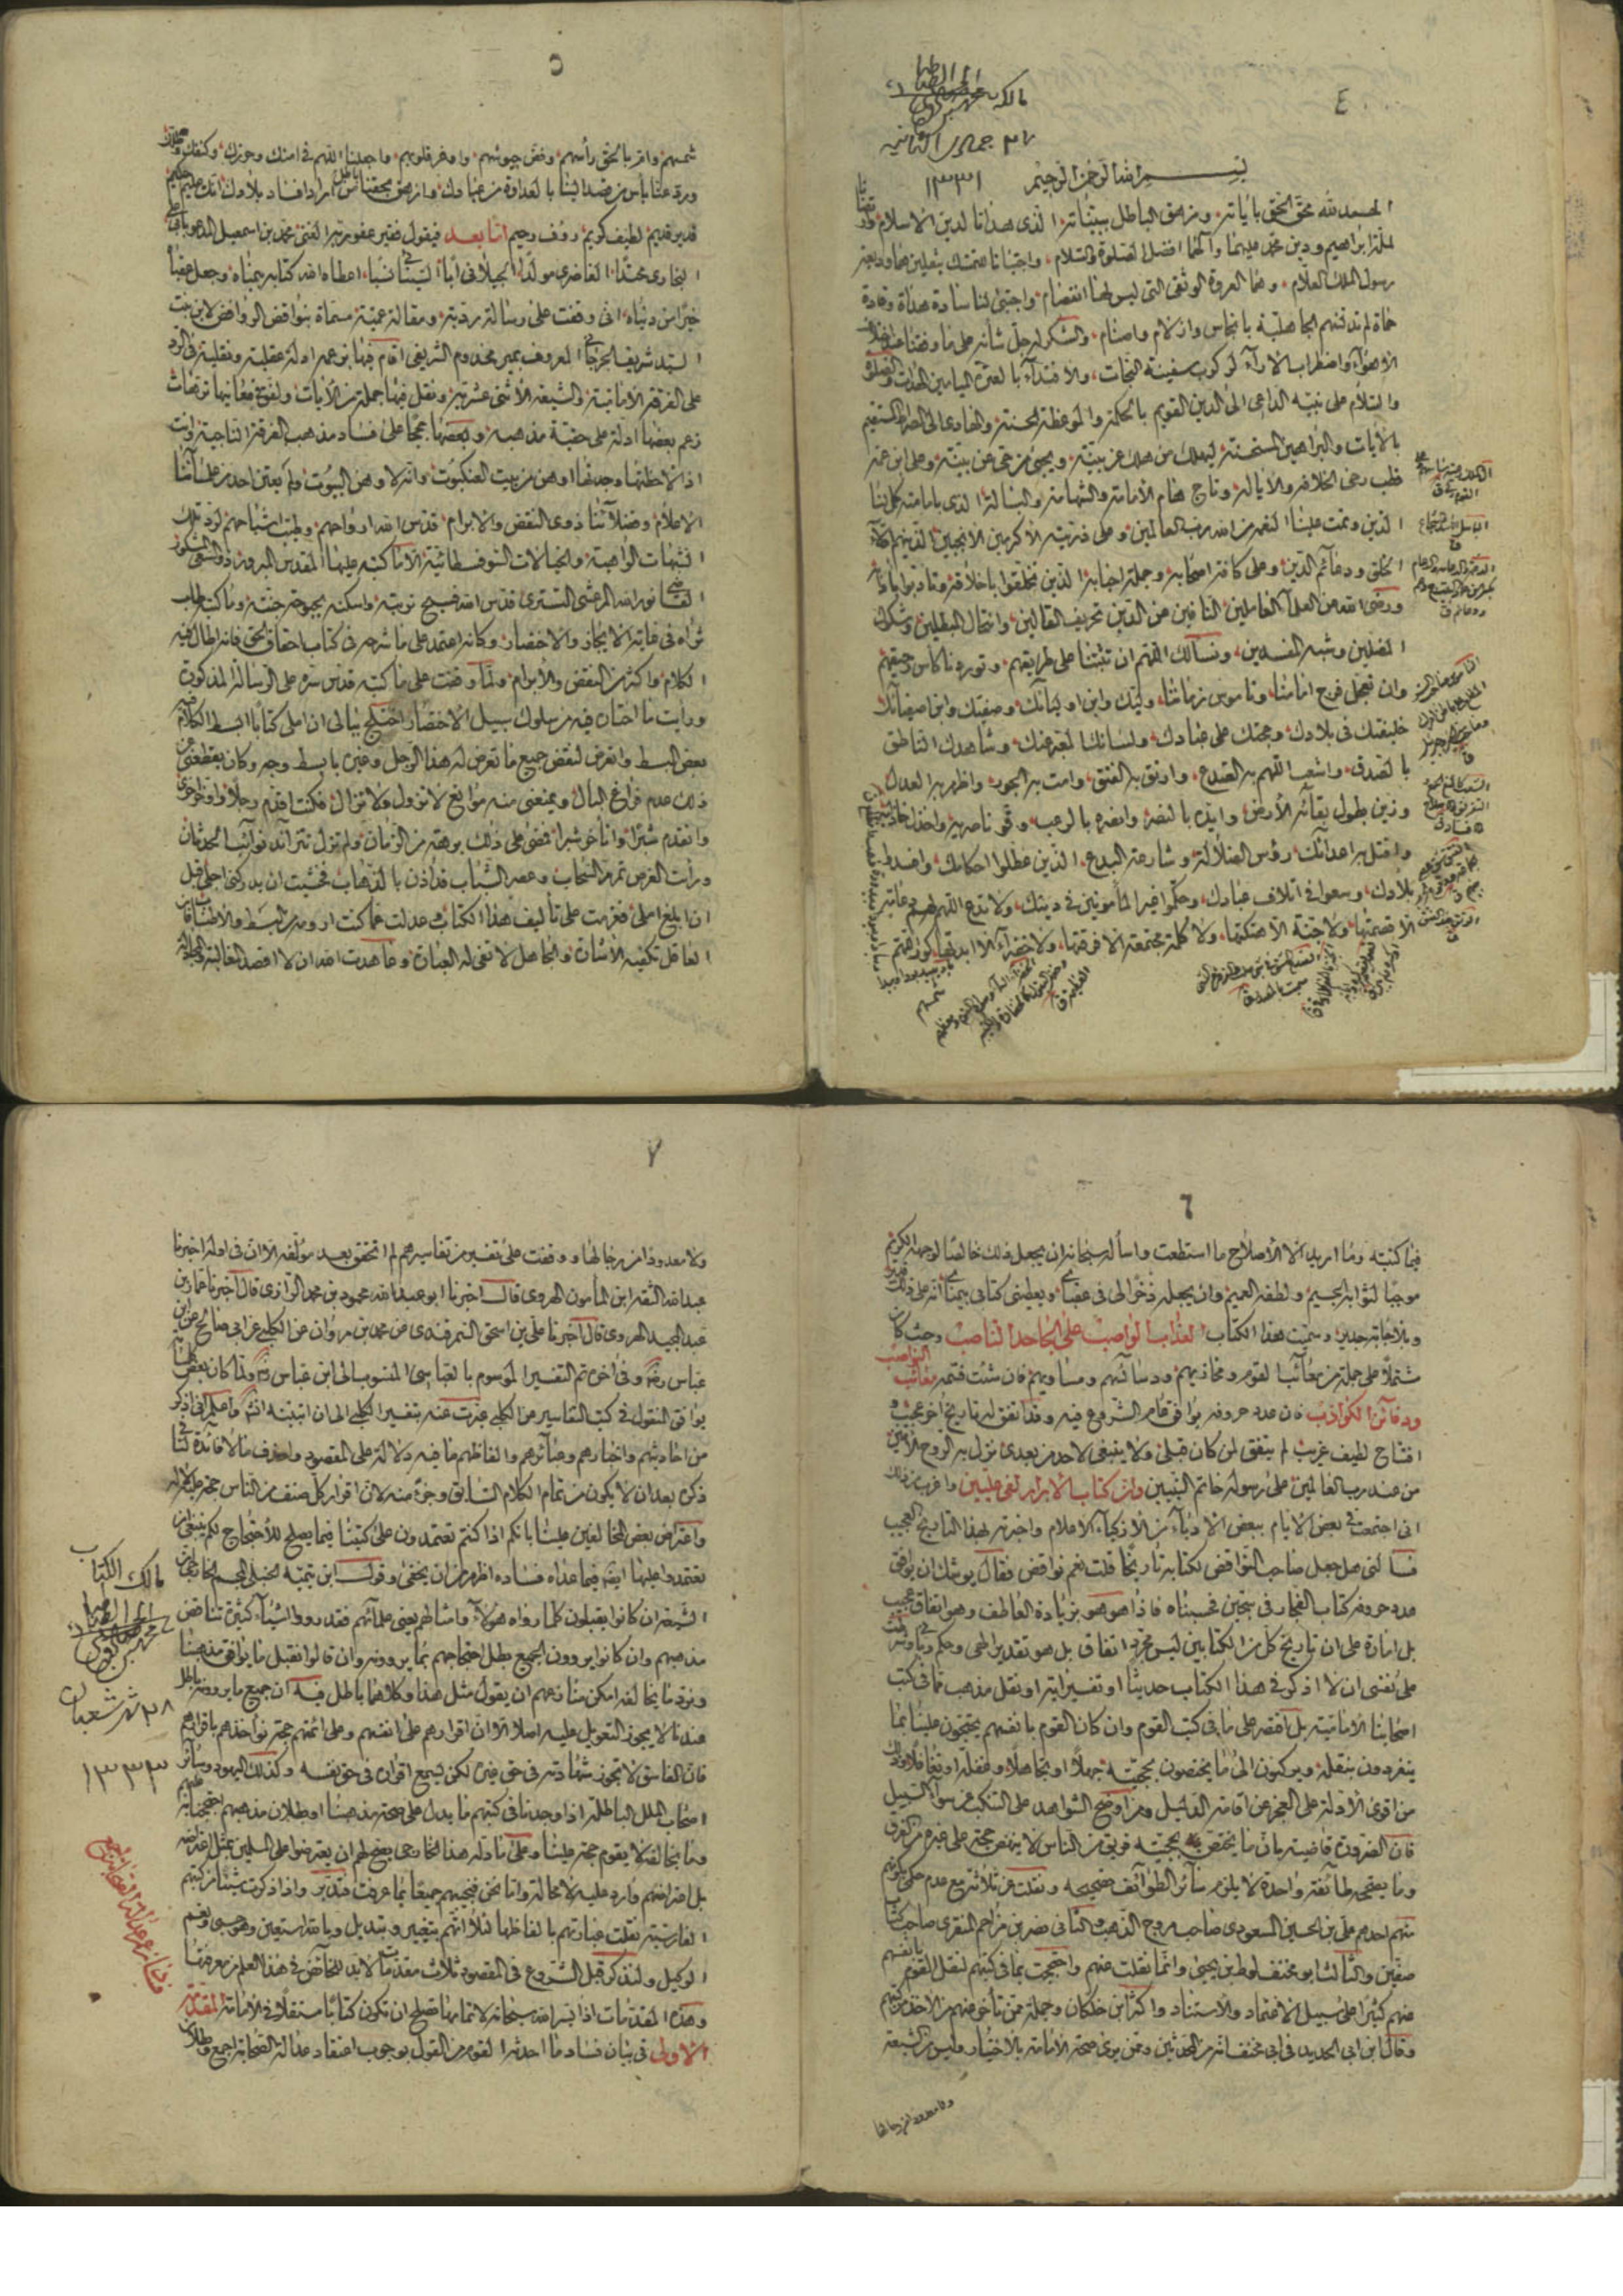 ٤
مالكه
٢٧ جمادى الثانيه
١٣٣١
بسم الله الرحمن الرحيم
الحمد لله محق الحق باياته ومزهق الباطل ببيناته الذى هدانا لدين الاسلام
لملة ابراهيم ودين محمد عليهما وآلهما افضل الصلوة والسلام واجتبانا للتمسك بثقلين هما وديعة
رسول الملك العلام وهما العروة الوثقى التى ليس لها انفصام واجتبى لنا سادة هداة وقادة
حماة لم تدنسهم الجاهلية بانجاس وازلام واصنام والشكر له جل شأنه على ما وفقنا عند اختلاف
الاهواء واضطراب الاراء لركوب سفينة النجات والاقتداء بالعترة الميامين الهداة والصلوة
والسلام على نبيه الداعى الى الدين القويم بالحكمة والموعظة الحسنة والهادى الى الصراط المستقيم
بالايات والبراهين المستحسنة ليهلك من هلك عن بينة ويحيى من حى عن بينة وعلى ابن عمه
قطب رحى الخلافة والايالة وتاج هام الامامة والشهامة والبسالة الذى بامامته كمل لنا
الدين وتمت علينا النعمة من الله رب العالمين وعلى ذريته الاكرمين الانجبين الذين هم
الخلق ودعائم الدين وعلى كافة اصحابه وجملة احبابه الذين تخلقوا باخلاقه وتادبوا بادابه
ورضى الله عن العلماء العاملين النافين عن الدين تحريف الغالين وانتحال المبطلين وشكوك
المضلين وشبه المفسدين ونسألك اللهم ان تثبتنا على طريقهم وتوردنا كاس رحيقهم
وان تعجل فرج امامنا وناموس زماننا وليك وابن اوليائك وصفيك وابن اصفيائك
خليفتك فى بلادك وحجتك على عبادك ولسانك المعبر عنك وشاهدك الناطق
بالصدق واشعب اللهم به الصدع وارتق به الفتق وامت به الجور واظهر به العدل
وزين بطول بقائه الارض وايده بالنصر وانصره بالرعب وقو ناصريه واخذل خاذليه
واقتل به اعدائك رؤس الضلالة وشارعة البدع الذين عطلوا احكامك وافسدوا
بلادك وسعوا فى اتلاف عبادك وحكموا غير المأمونين فى دينك ولا تدع اللهم لهم دعامة
الا قصمتها ولا جنة الا هتكتها ولا كلمة مجتمعة الا فرقتها ولا خضراء الا ابدتها كور اللهم
٥
شمسهم واقرع بالحق رأسهم وفض جيوشهم واوهر قلوبهم واجعلنا اللهم فى امنك وحرزك وكنفك
ورد عنا باس من قصد الينا بالعداوة من عبادك وازهق بحقنا باطل من اراد افساد بلادك انك عليم حكيم
قدير قديم لطيف كريم رؤف رحيم اما بعد فيقول فقير عفو ربه الغنى محمد بن اسمعيل المدعو
البخارى محتدا الغاضرى مولدا الجيلانى ابا السينائى نسبا اعطاه الله كتابه بيمناه وجعل عقباه
خيرا من دنياه انى وقفت على رسالة ردية ومقالة عمية مسماة بنواقض الروافض لابن بنت
السيد شريف الجرجانى المعروف بمير مخدوم الشريفى اقام فيها بزعمه ادلة عقلية ونقلية فى الرد
على الفرقة الامامية والشيعة الاثنى عشرية ونقل فيها جملة من الايات ولفق فى معانيها ترهات
زعم بعضها ادلة على حقية مذهبه وبعضها حججا على فساد مذهب الفرقة الناجية وانت
اذا لاحظتها وجدتها اوهن من بيت العنكبوت وانه لاوهن البيوت ولم يعتن احد من علمائنا
الاعلام وفضلائنا ذوى النقض والابرام قدس الله ارواحهم وطيب اشباحهم لرد تلك
الشبهات الواهية والخيالات السوفسطائية الا ما كتبه عليها المقدس المبرور ذو السعى المشكور
القاضى نور الله المرعشى التسترى قدس الله فسيح تربته واسكنه بحبوحة جنته وما كتبه طاب
ثراه فى غاية الايجاز والاختصار وكانه اعتمد على ما شرحه فى كتاب احقاق الحق فانه اطال فيه
الكلام واكثر من النقض والابرام ولما وقفت على ما كتبه قدس سره على الرسالة المذكورة
ورأيت ما اختاره فيه من سلوك سبيل الاختصار اختلج ببالى ان املى كتابا ابسط الكلام فيه
بعض البسط واتعرض لنقض جميع ما تعرض له هذا الرجل وغيره بابسط وجه وكان يقطعنى عن
ذلك عدم فراغ البال ويمنعنى منه موانع لا تزول ولا تزال فكنت اقدم رجلا واؤخر اخرى
واتقدم شبرا واتأخر شبرا فمضى على ذلك برهة من الزمان ولم تزل تترائد نوائب الحدثان
ورأيت الفرص تمر مر السحاب وعصر الشباب قد اذن بالذهاب فخشيت ان يدركنى اجلى قبل
ان ابلغ املى فعزمت على تأليف هذا الكتاب وعدلت عما كنت ارومه من البسط والاطناب فان
العاقل تكفيه الاشارة والجاهل لا تغنى له العبارة وعاهدت الله ان لا اقصد المغالبة
٦
فيما كتبته وما اريد الا الاصلاح ما استطعت واسأله سبحانه ان يجعل ذلك خالصا لوجهه الكريم
موجبا لثوابه الجسيم ولطفه العميم وان يجعله ذخرا لى فى عقباى ويعطينى كتابى بيمناى انه على ذلك قدير
وبالاجابة جدير وسميت هذا الكتاب العذاب الواصب على الجاحد الناصب وحيث كان
مشتملا على جملة من معائب القوم ومخازيهم ودسائسهم ومساويهم فان شئت فسمه بمعائب النواصب
ودفائن الكواذب فان عدد حروفه يوافق عام الشروع فيه وقد اتفق له تاريخ اخر عجيب و
افتتاح لطيف غريب لم يتفق لمن كان قبلى ولا ينبغى لاحد من بعدى نزل به الروح الامين
من عند رب العالمين على رسوله خاتم النبيين وان كتاب الابرار لفى عليين واغرب من ذلك
انى اجتمعت فى بعض الايام ببعض الادباء من الاذكياء الاعلام واخبرته بهذا التاريخ العجيب
فسألنى هل جعل صاحب النواقض لكتابه تاريخا قلت نعم نواقض فقال يوشك ان يوافق
عدد حروفه كتاب الفجار فى سجين فحسبناه فاذا هو هو بزيادة العاطف وهو اتفاق عجيب
بل امارة على ان تاريخ كل من الكتابين ليس مجرد اتفاق بل هو تقدير الهى وحكم ربانى
على نفسى ان لا اذكر فى هذا الكتاب حديثا او تفسير اية او نقل مذهب مما فى كتب
اصحابنا الامامية بل اقتصر على ما فى كتب القوم وان كان القوم بانفسهم يحتجون علينا بما
يتفردون بنقله ويركنون الى ما يختصون بحجيته جهلا او تجاهلا وغفلة او تغافلا وذلك
من اقوى الادلة على العجز عن اقامة الدليل ومن اوضح الشواهد على التنكب عن سواء السبيل
فان الضرورة قاضية بان ما يختص بحجيته فريق من الناس لا ينتهض حجة على غيره من الفرق
وما يصححه طائفة واحدة لا يلزم سائر الطوائف تصحيحه ونقلت عن ثلاثة مع عدم
منهم احدهم على بن الحسين المسعودى صاحب مروج الذهب والثانى نصر بن مزاحم المنقرى صاحب كتاب
صفين والثالث ابو مخنف لوط بن يحيى وانما نقلت عنهم واحتججت بما فى كتبهم لنقل القوم بانفسهم
عنهم كثيرا على سبيل الاعتماد والاستناد واكثر ابن خلكان وجملة ممن تأخر عنهم من الاخذ من كتبهم
وقال ابن ابى الحديد فى ابى مخنف انه من المحدثين وممن يرى صحة الامامة بالاختيار وليس من الشيعة
ولا معدودا من رجالها
٧
ولا معدودا من رجالها ووقفت على تفسير من تفاسيرهم لم اتحقق بعد مؤلفه الا ان فى اوله اخبرنا
عبد الله الثقة ابن المأمون الهروى قال اخبرنا ابو عبد الله محمود بن محمد الرازى قال اخبرنا عمار بن
عبد المجيد الهروى قال اخبرنا على بن اسحق السمرقندى عن محمد بن مروان عن الكلبى عن ابى صالح عن ابن
عباس وفى اخره تم التفسير الموسوم بالعباسى المنسوب الى ابن عباس ولما كان بعض ما فيه
يوافق المنقول فى كتب التفاسير عن الكلبى عبرت عنه بتفسير الكلبى الى ان اثبته واعلم انى اذكر
من احاديثهم واخبارهم وعبائرهم والفاظهم ما فيه دلالة على المقصود واحذف ما لا فائدة لنا فى
ذكره بعد ان لا يكون من تمام الكلام السابق وجزء منه لان اقرار كل صنف من الناس حجة عليه لا له
واعتراض بعض المخالفين علينا بانكم اذا كنتم تعتمدون على كتبنا فيما يصلح للاحتجاج لكم ينبغى ان
تعتمدوا عليها ايضا فيما عداه فساده اظهر من ان يخفى وقول ابن تيمية الحنبلى
الشيعة ان كانوا يقبلون كلما رواه هؤلاء وامثالهم يعنى علمائهم فقد رووا اشياء كثيرة تناقض
مذهبهم وان كانوا يردون الجميع بطل احتجاجهم بما يروونه وان قالوا نقبل ما يوافق مذهبنا
ونرد ما يخالفه امكن منازعهم ان يقول مثل هذا وكلاهما باطل فيه ان جميع ما يروونه باطل
عندنا لا يجوز التعويل عليه اصلا الا ان اقرارهم على انفسهم وعلى ائمتهم حجة نؤاخذهم باقرارهم
فان الفاسق لا تجوز شهادته فى حق غيره لكن يسمع اقراره فى حق نفسه وكذلك اليهود وسائر
اصحاب الملل الباطلة اذا وجدنا فى كتبهم ما يدل على صحة مذهبنا او بطلان مذهبهم
وما يخالفه لا يقوم حجة علينا وعلى ما قاله هذا الخارجى يصح لهم ان يعترضوا على المسلمين بمثل اعتراضه
بل اعتراضهم وارد عليه لا محالة واما نحن فنجيبهم جميعا بما عرفت فتدبر واذا ذكرت شيئا من كتبهم
الفارسية نقلت عباراتهم بالفاظها لئلا اتهم بتغيير وتبديل وبالله استعين وهو حسبى ونعم
الوكيل ولنذكر قبل الشروع فى المقصود ثلاث مقدمات لابد للخائض فى هذا العلم من معرفتها
وهذه المقدمات اذا يسر الله سبحانه لاتمامها تصلح ان تكون كتابا مستقلا فى الامامة المقدمة
الاولى فى بيان فساد ما احدثه القوم من القول بوجوب اعتقاد عدالة الصحابة اجمع وبطلان
مالك الكتاب
٢٨ شهر شعبان
١٣٣٣